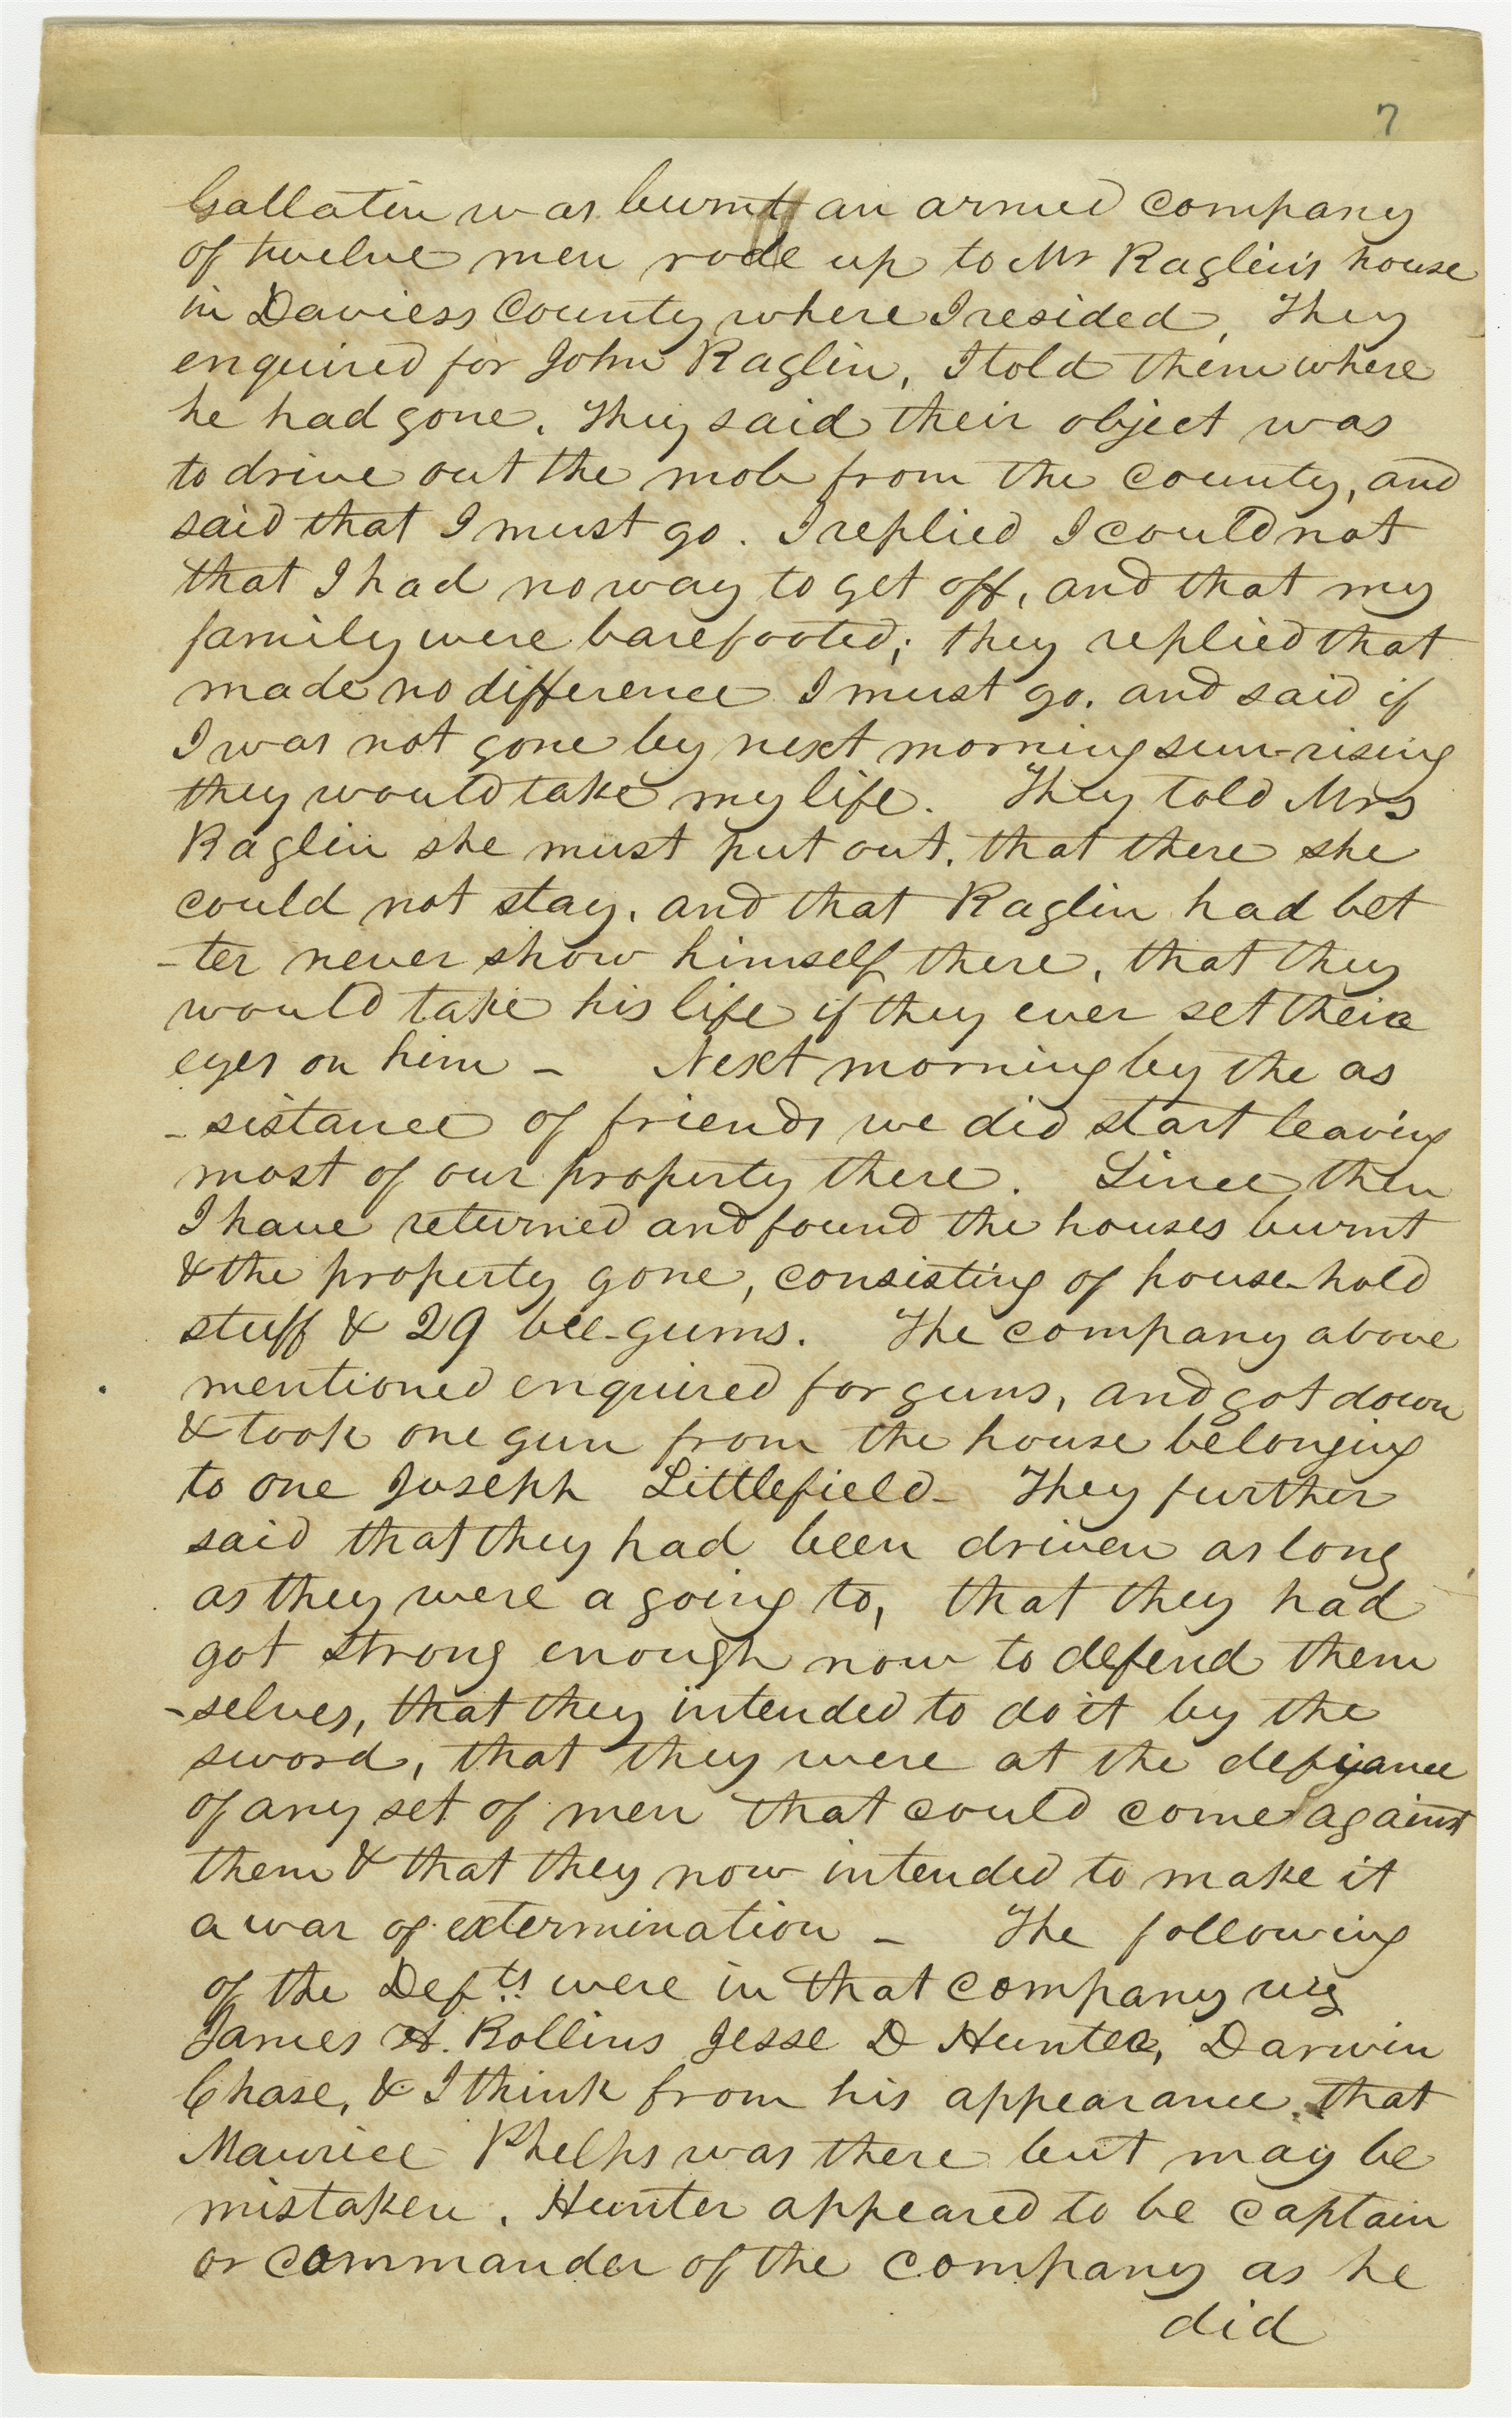 7
Gallatin was burnt an armed company
of twelve men rode up to Mr Raglin's house
in Daviess County where I resided, They
enquired for John Raglin, I told them where
he had gone. They said their object was
to drive out the mob from the county, and
said that I must go. I replied I could not
that I had no way to get off, and that my
family were barefooted; they replied that
made no difference I must go. and said if
I was not gone by next morning sun-rising
they would take my life. They told Mrs
Raglin she must put out, that there she
could not stay. and that Raglin had bet
-ter never show himself there, that they
would take his life if they ever set their
eyes on him - Next morning by the as
-sistance of friends we did start leaving
most of our property there. Since then
I have returned and found the houses burnt
& the property gone, consisting of house-hold
stuff & 29 bee-gums. The company above
mentioned enquired for guns, and got down
& took one gun from the house belonging
to one Joseph Littlefield- They further
said that they had been driven as long
as they were a going to, that they had
got strong enough now to defend them
-selves, that they intended to do it by the
sword, that they were at the defiyance
of any set of men that could come against
them & that they now intended to make it
a war of extermination - The following
of the Defts were in that company viz
James H. Rollins Jesse D Hunter, Darwin
Chase, & I think from his appearance, that
Maurice Phelps was there but may be
mistaken. Hunter appeared to be captain
or commander of the company as he
did